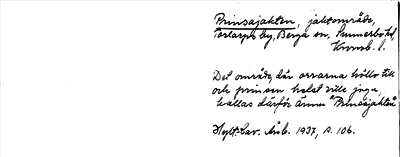 Prinsajakten, jaktområde,
Torlarps by, Berga sn, Sunnerbo hd,
Kronob. l.
Det område, där orrarna höllo till
och prinsen helst ville jaga,
kallas därför ännu "Prinsajakten"
Hylt.-Cav. Årsb. 1937, s. 106.